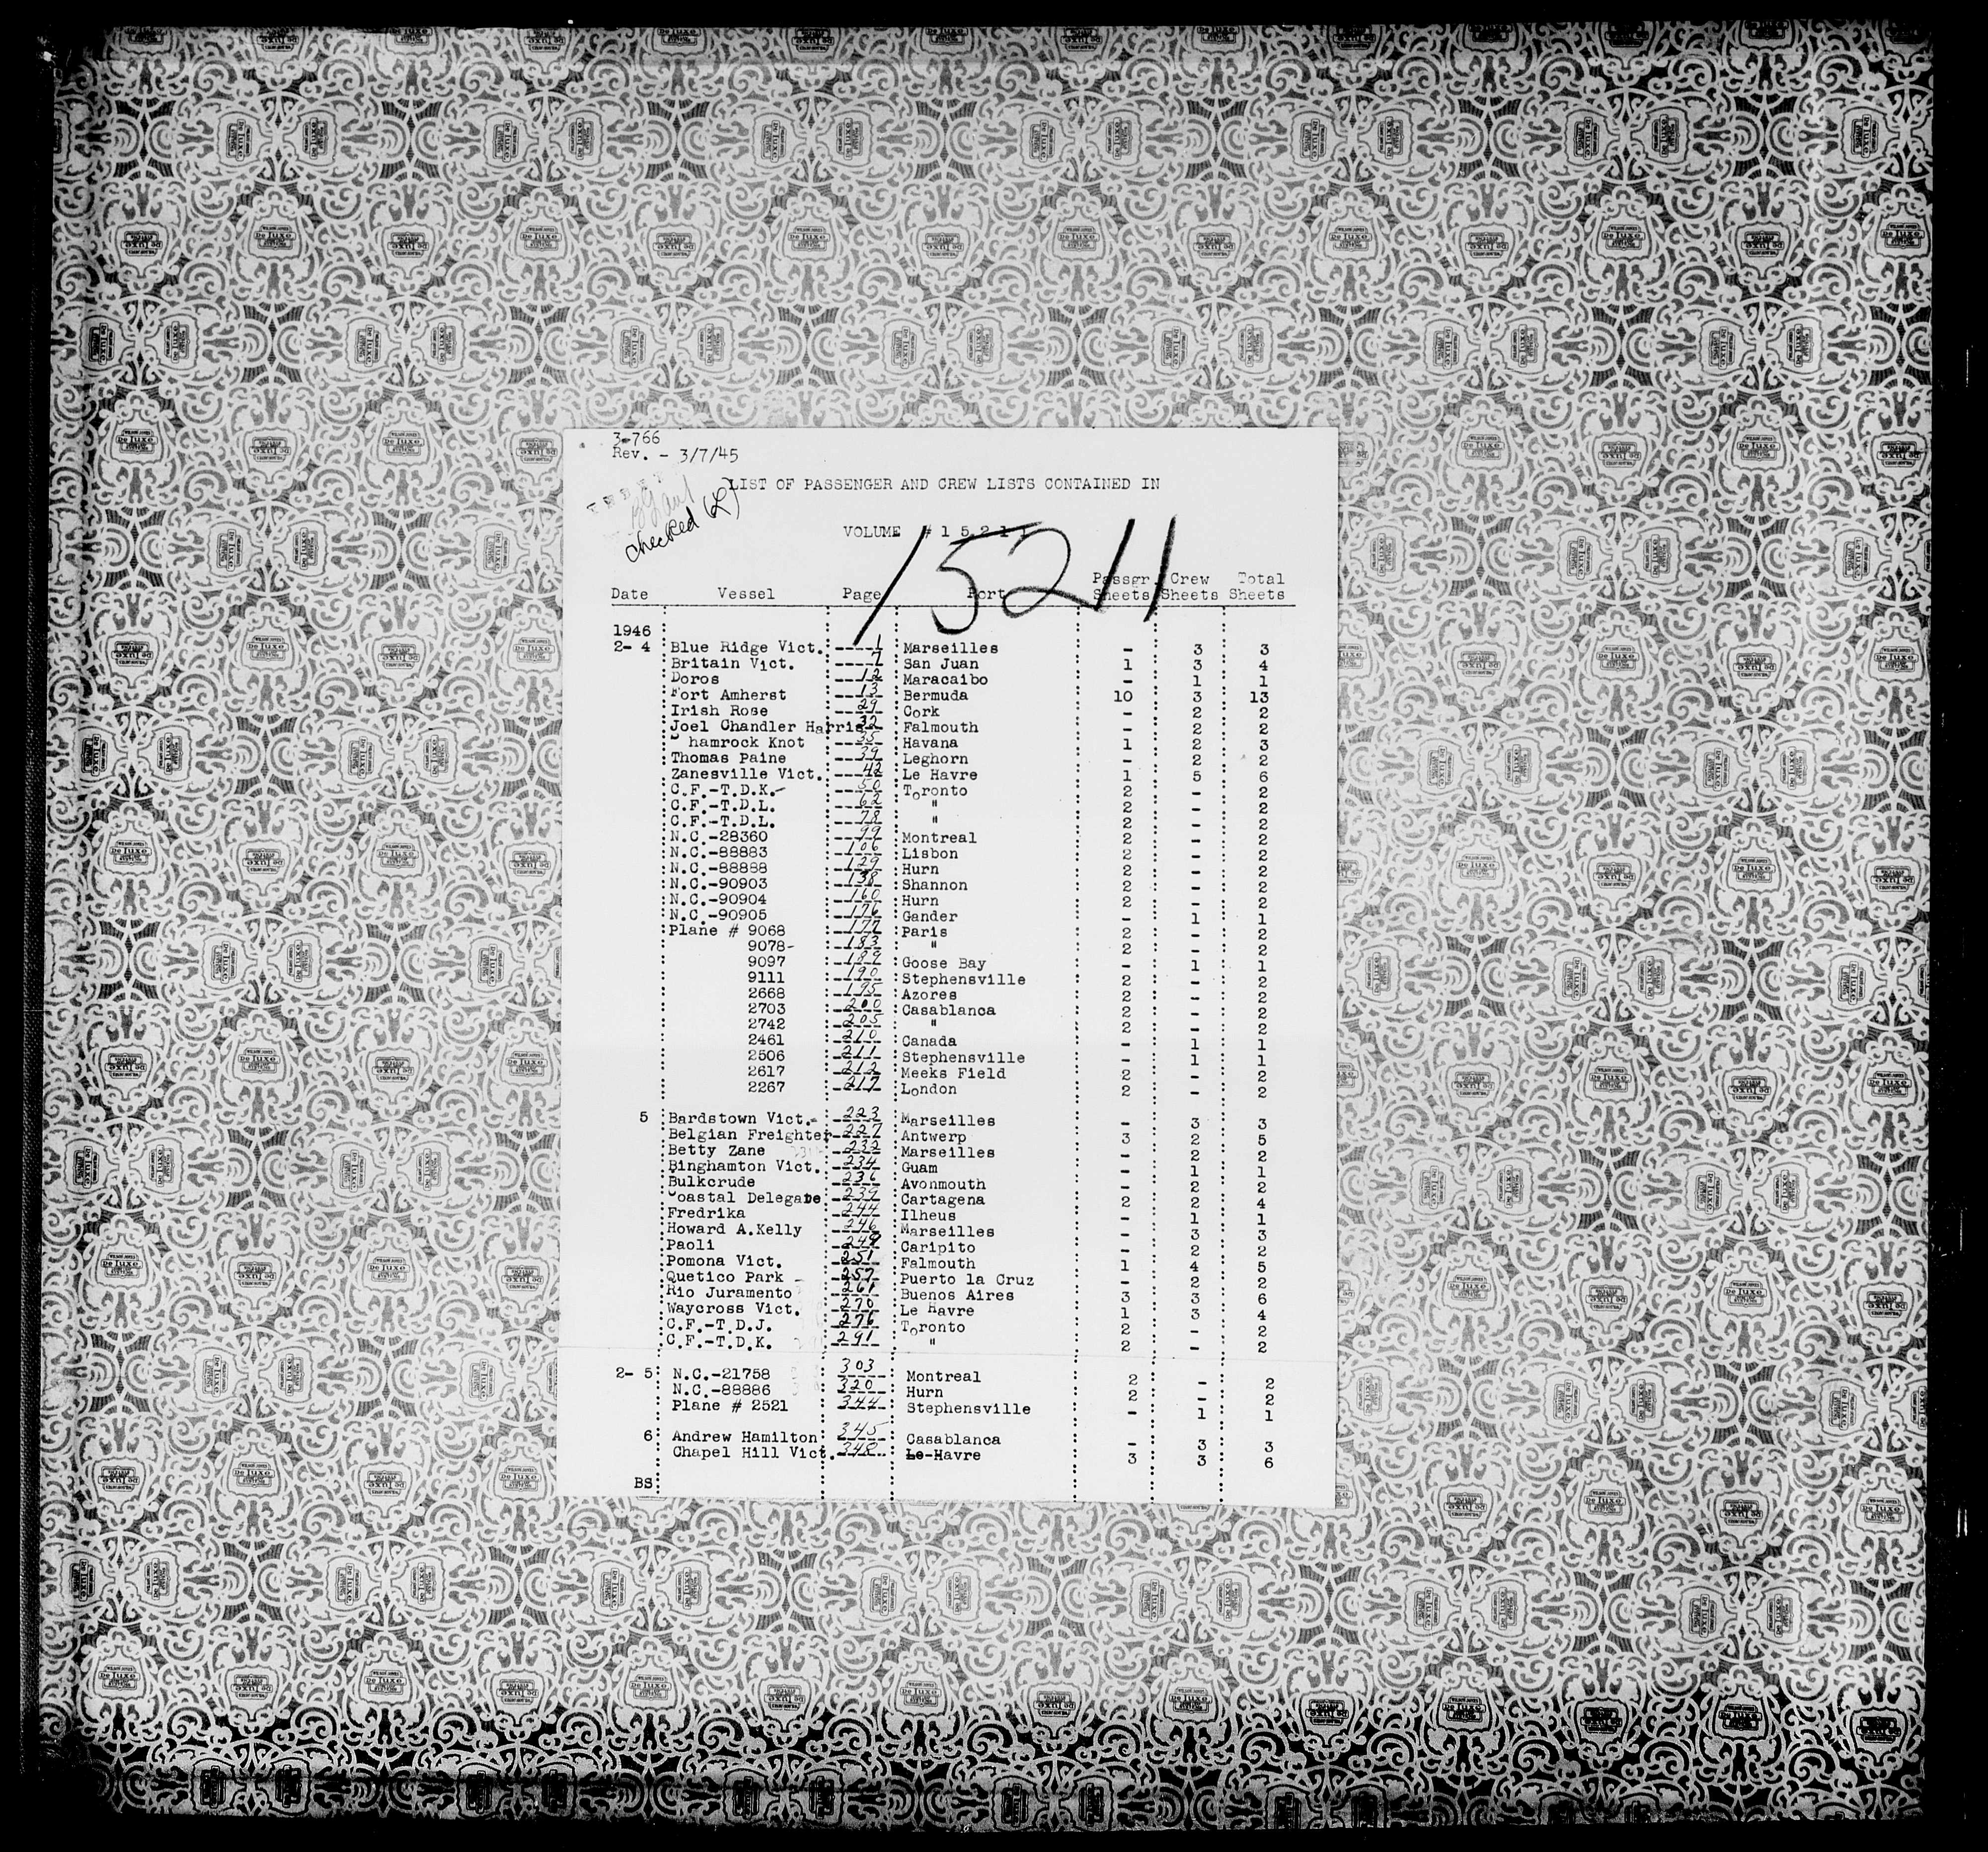 3-766
Rev. - 3/7/45
checked (L)
LIST OF PASSENGER AND CREW LISTS CONTAINED IN
VOLUME # 1 5 2 1
15211
Passgr. Crew Total
Date Vessel Page Port Sheets Sheets Sheets
1946
2- 4 Blue Ridge Vict. 1 Marseilles - 3 3
Britain Vict. 7 San Juan 1 3 4
Doros 12 Maracaibo - 1 1
Fort Amherst 13 Bermuda 10 3 13
Irish Rose 29 Cork - 2 2
Joel Chandler Harris 32 Falmouth - 2 2
Shamrock Knot 35 Havana 1 2 3
Thomas Paine 39 Leghorn - 2 2
Zanesville Vict. 42 Le Havre 1 5 6
C.F.-T.D.K.- 50 Toronto 2 - 2
C.F.-T.D.L. 62 " 2 - 2
C.F.-T.D.L. 78 " 2 - 2
N.C.-28360 99 Montreal 2 - 2
N.C.-88883 106 Lisbon 2 - 2
N.C.-88888 129 Hurn 2 - 2
N.C.-90903 138 Shannon 2 - 2
N.C.-90904 160 Hurn 2 - 2
N.C.-90905 176 Gander - 1 1
Plane # 9068 177 Paris 2 - 2
9078- 183 " 2 - 2
9097 189 Goose Bay - 1 1
9111 190 Stephensville 2 - 2
2668 195 Azores 2 - 2
2703 200 Casablanca 2 - 2
2742 205 " 2 - 2
2461 210 Canada - 1 1
2506 211 Stephensville - 1 1
2617 212 Meeks Field 2 - 2
2267 217 London 2 - 2
5 Bardstown Vict.- 223 Marseilles - 3 3
Belgian Freighter 227 Antwerp 3 2 5
Betty Zane 232 Marseilles - 2 2
Binghamton Vict. 234 Guam - 1 1
Bulkcrude 236 Avonmouth - 2 2
Coastal Delegate 239 Cartagena 2 2 4
Fredrika 244 Ilheus - 1 1
Howard A.Kelly 246 Marseilles - 3 3
Paoli 249 Caripito - 2 2
Pomona Vict. 251 Falmouth 1 4 5
Quetico Park - 257 Puerto la Cruz - 2 2
Rio Juramento 261 Buenos Aires 3 3 6
Waycross Vict. 270 Le Havre 1 3 4
C.F.-T.D.J. 276 Toronto 2 - 2
C.F.-T.D.K. 291 " 2 - 2
2- 5 N.C.-21758 303 Montreal 2 - 2
N.C.-88886 320 Hurn 2 - 2
Plane # 2521 344 Stephensville - 1 1
6 Andrew Hamilton 345 Casablanca - 3 3
Chapel Hill Vict. 348 Le-Havre 3 3 6
BS